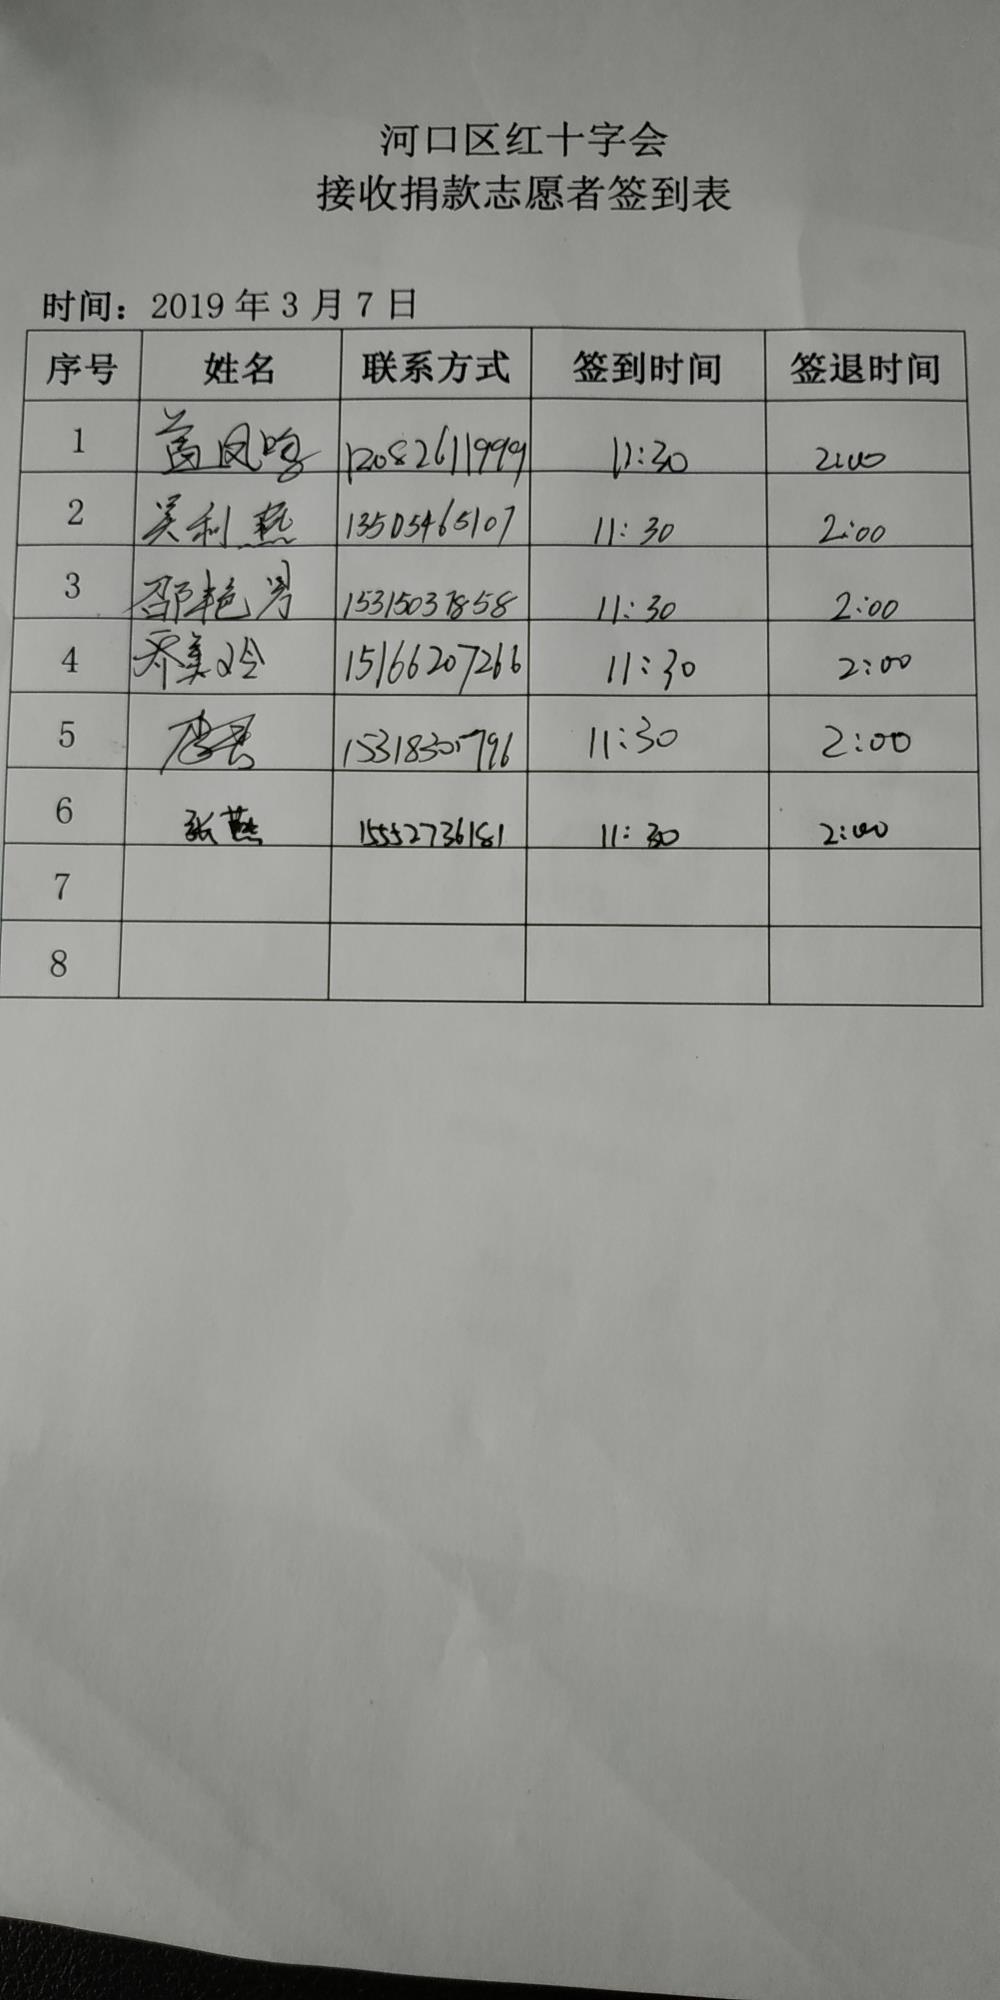 河口区红十字会
接收捐款志愿者签到表
时间：2019年3月7日
序号 姓名 联系方式 签到时间 签退时间
1 11:30 2:00
2 吴利燕 13505465107 11:30 2:00
3 邵艳男 15315037858 11:30 2:00
4 乔美玲 15166207266 11:30 2:00
5 15318305796 11:30 2:00
6 张燕 15552736181 11:30 2:00
7
8